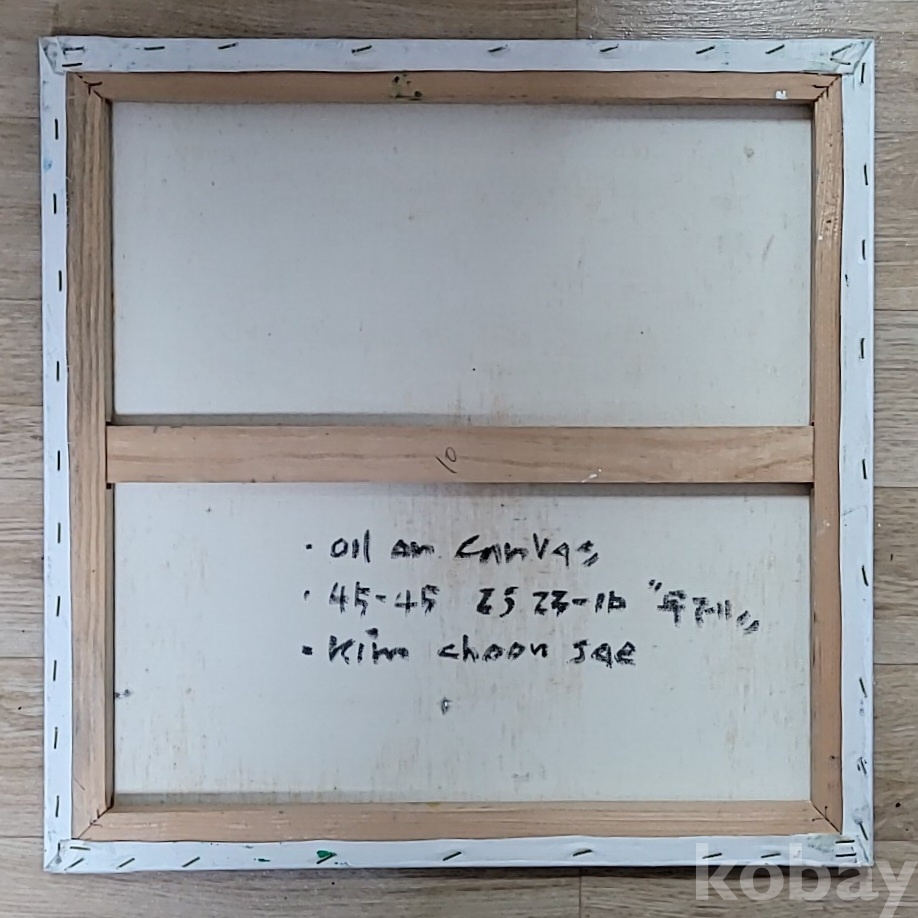 10
· oil on canvas
· 45-45 2523-16 "무제"
· Kim choon sae
kobay